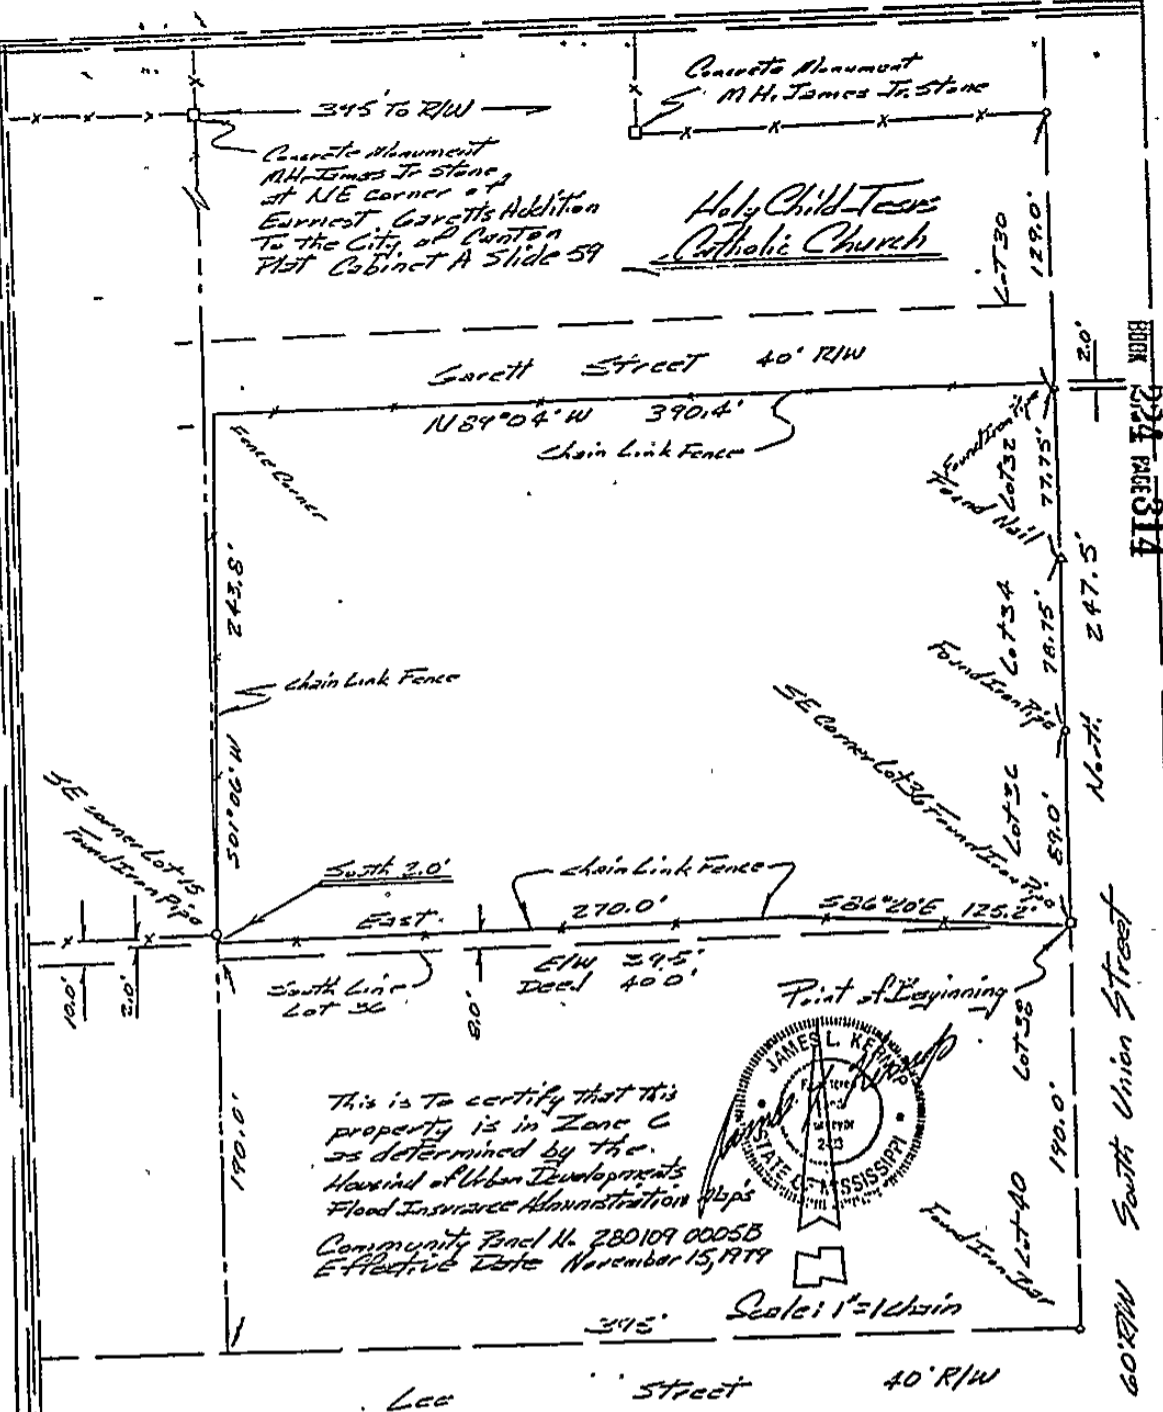 Concrete Monument
M.H. James Jr. Stone
395' To R/W
Concrete Monument
M.H. James Jr Stone
at NE corner of
Earnest Garetts Addition
To the City of Canton
Plat Cabinet A Slide 59
Holy Child Jesus
Catholic Church
Lot 30
129.0'
2.0'
BOOK PAGE 314
Garett Street 40' R/W
N 89°04' W 390.4'
Chain Link Fence
Fence Corner
Found Iron Pipe
Found Nail
Lot 32
77.75'
247.5'
243.8'
Lot 34
78.75'
Found Iron Pipe
Chain Link Fence
SE Corner Lot 36 Found Iron
Lot 36
89.0'
North
S01°06' W
SE corner Lot 15
Found Iron Pipe
South 2.0'
Chain Link Fence
East 270.0'
S86°20'E 125.2'
10.0'
2.0'
8.0'
South Line
Lot 36
E/W 39.5'
Deed 40.0'
Point of Beginning
Lot 38
South Union Street
JAMES L. KERNOP
STATE OF MISSISSIPPI
This is To certify that this
property is in Zone C
as determined by the
Housind of Urban Developments
Flood Insurance Administration Map's
Community Panel No. 280109 0005B
Effective Date November 15, 1979
190.0'
190.0'
Lot 40
Found Iron Bar
Scale: 1"=1 chain
395'
60' R/W
Lee Street 40' R/W